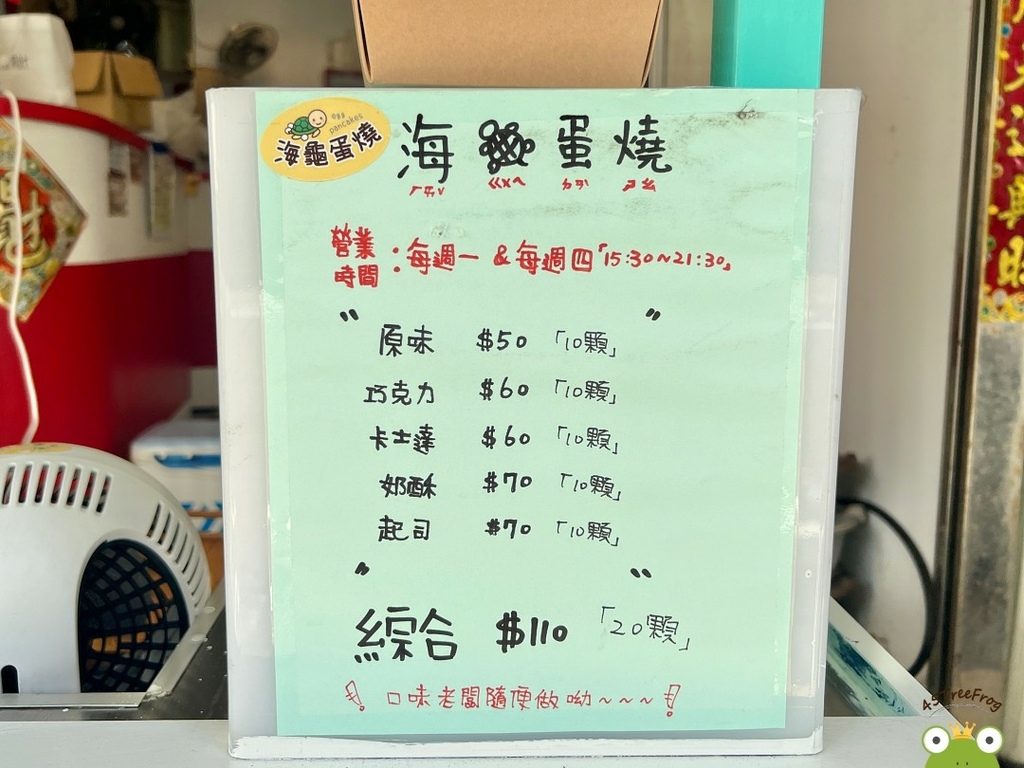 egg
pancakes
海龜蛋燒
海龜蛋燒
ㄏㄞˇ ㄍㄨㄟ ㄉㄢˋ ㄕㄠ
營業時間：每週一 & 每週四「15:30~21:30」
原味 $50 「10顆」
巧克力 $60 「10顆」
卡士達 $60 「10顆」
奶酥 $70 「10顆」
起司 $70 「10顆」
綜合 $110 「20顆」
! 口味老闆隨便做呦~~~!
453reeFrog